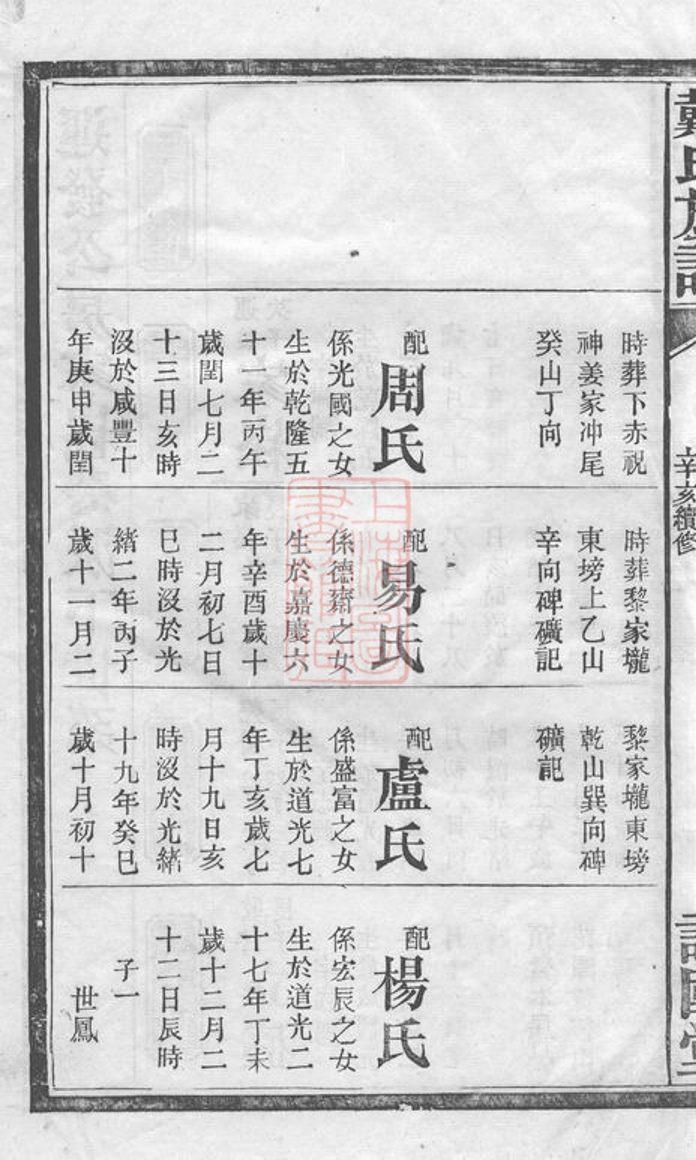 戴氏族譜
辛亥續修
時葬下赤祝
神姜家冲尾
癸山丁向
配周氏
係光國之女
生於乾隆五
十一年丙午
歲閏七月二
十三日亥時
沒於咸豐十
年庚申歲閏
時葬黎家壠
東塝上乙山
辛向碑礦記
配易氏
係德齋之女
生於嘉慶六
年辛酉歲十
二月初七日
巳時沒於光
緒二年丙子
歲十一月二
黎家壠東塝
乾山巽向碑
礦記
配盧氏
係盛富之女
生於道光七
年丁亥歲七
月十九日亥
時沒於光緒
十九年癸巳
歲十月初十
配楊氏
係宏辰之女
生於道光二
十七年丁未
歲十二月二
十二日辰時
子一
世鳳